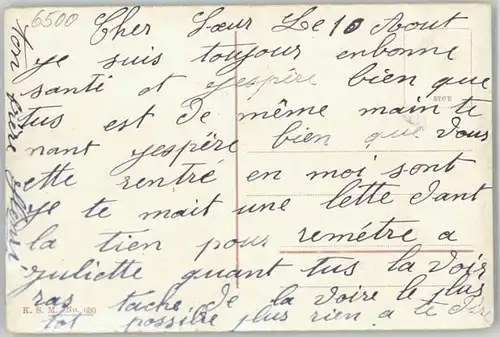 6500
Cher Sœur Le 10 Aout
je suis toujour enbonne
santi et yespére bien que
tus est de même mainte
nant yespére bien que vous
ette rentré en moi sont
je te mait une lette dant
la tien pour remétre a
juliette quant tus la voir
ras tache de la voire le plus
tot possible plus rien a te dire
ton frère
K. S. M. No. 680